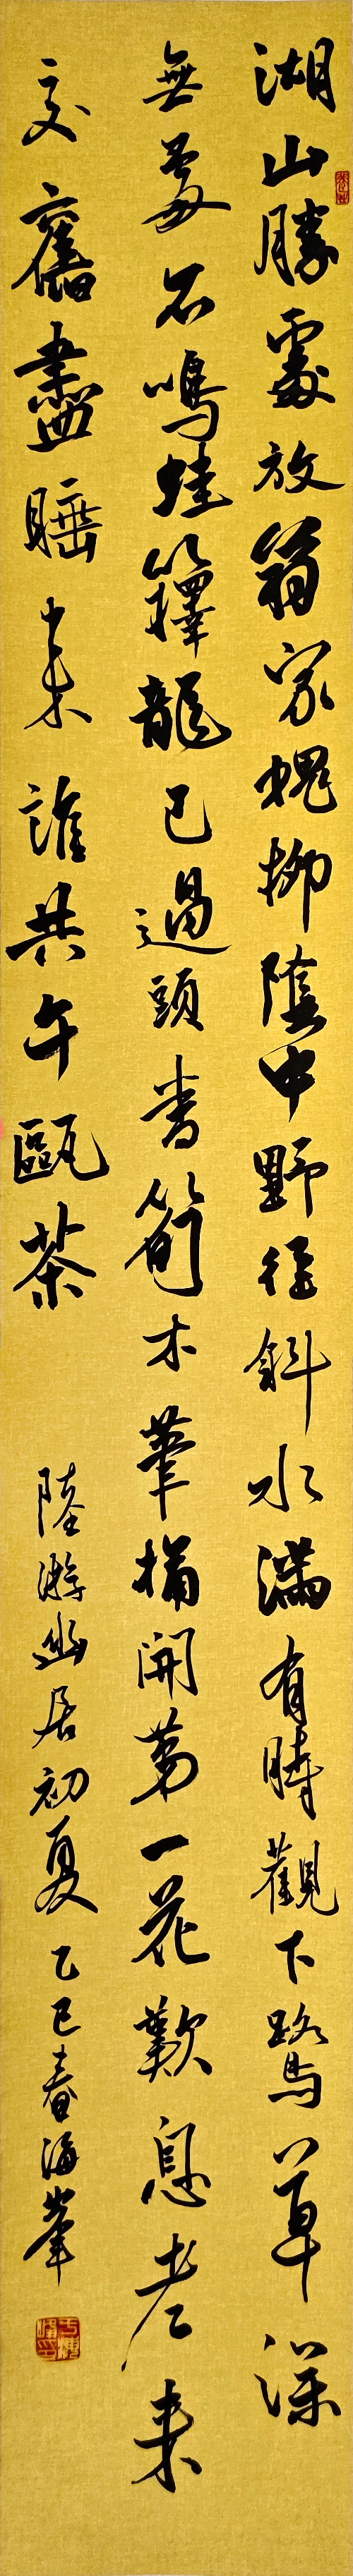 湖山勝處放翁家槐柳陰中野徑斜水滿有時觀下鷺草深
無處不鳴蛙籜龍已過頭番筍木筆猶開第一花歎息老來
交舊盡睡來誰共午甌茶
陸游幽居初夏乙巳春海峯